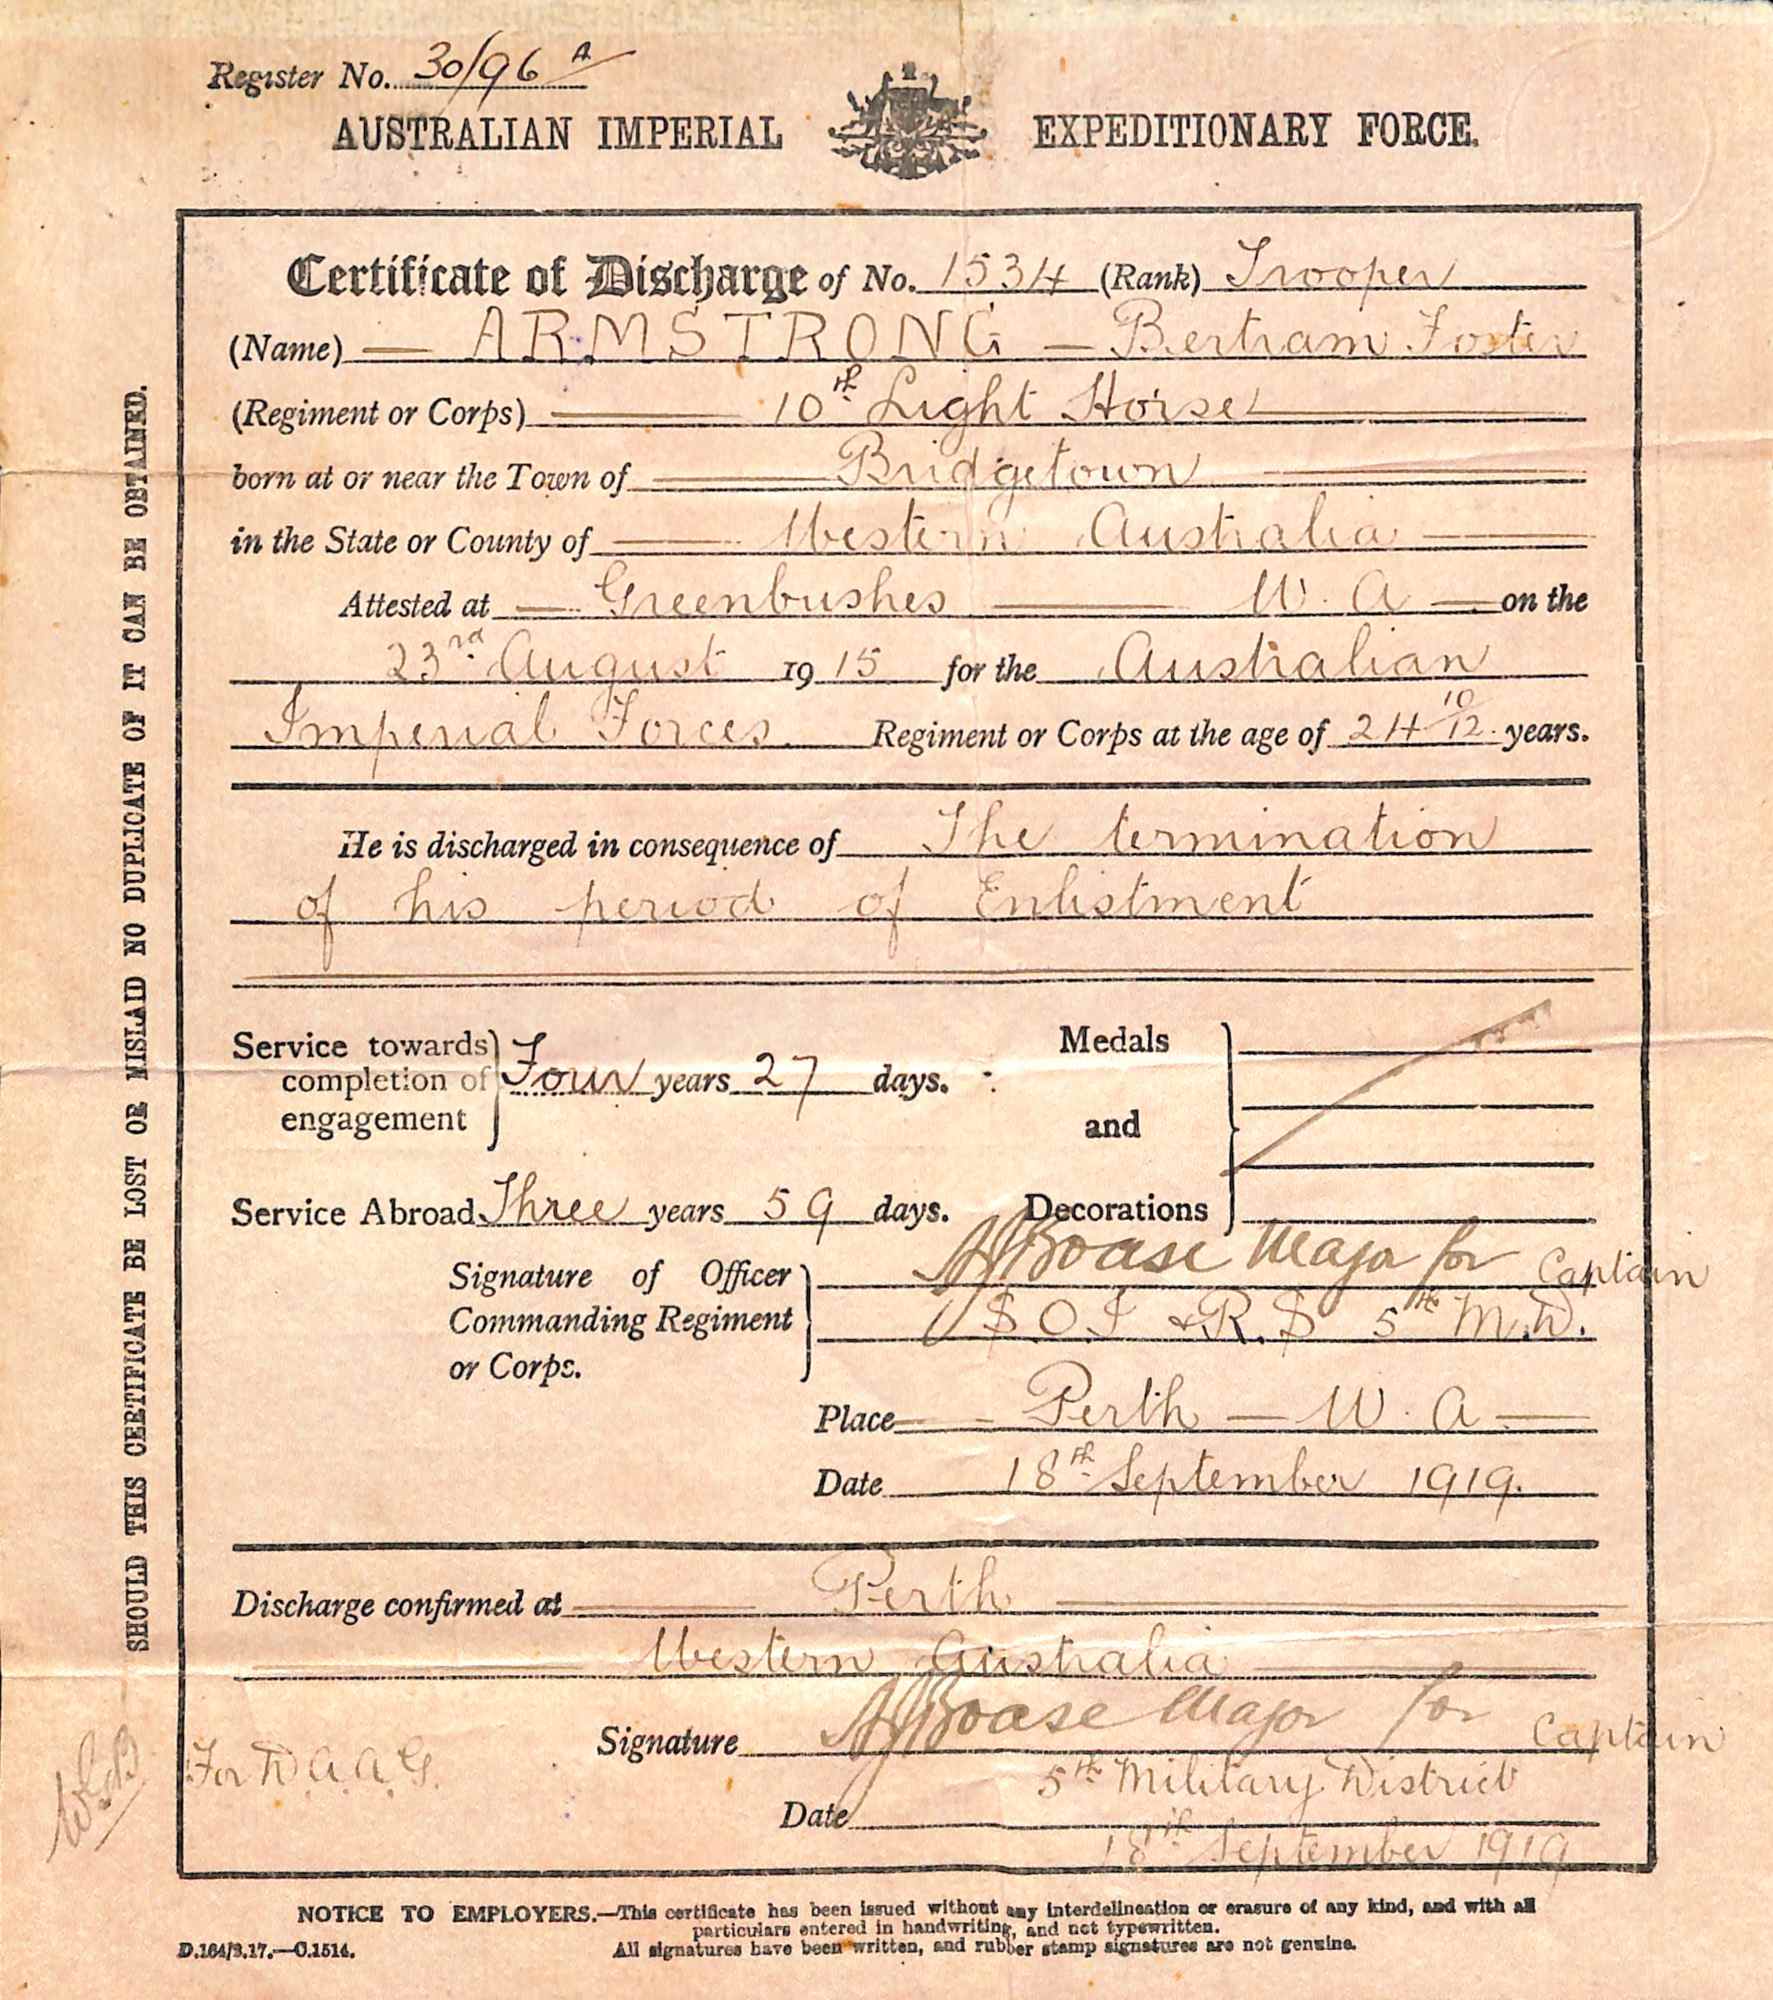 Register No. 30/96 A
AUSTRALIAN IMPERIAL EXPEDITIONARY FORCE.
Certificate of Discharge of No. 1534 (Rank) Trooper
(Name) — ARMSTRONG — Bertram Foster
(Regiment or Corps) 10th Light Horse
born at or near the Town of Bridgetown
in the State or County of Western Australia
Attested at — Greenbushes — W. A — on the
23rd August 1915 for the Australian
Imperial Forces. Regiment or Corps at the age of 24 10/12 years.
He is discharged in consequence of The termination
of his period of Enlistment
Service towards completion of engagement Four years 27 days.
Service Abroad Three years 59 days.
Medals and Decorations
Signature of Officer Commanding Regiment or Corps.
Boase Major for Captain
S O I & R. S 5th M.D.
Place — Perth — W. A —
Date 18th September 1919.
Discharge confirmed at Perth
Western Australia
Signature Boase Major for Captain
For D. A. A. G. 5th Military District
Date 18th September 1919
SHOULD THIS CERTIFICATE BE LOST OR MISLAID NO DUPLICATE OF IT CAN BE OBTAINED.
NOTICE TO EMPLOYERS.—This certificate has been issued without any interdelineation or erasure of any kind, and with all
particulars entered in handwriting, and not typewritten.
D.164/3.17.—C.1514. All signatures have been written, and rubber stamp signatures are not genuine.